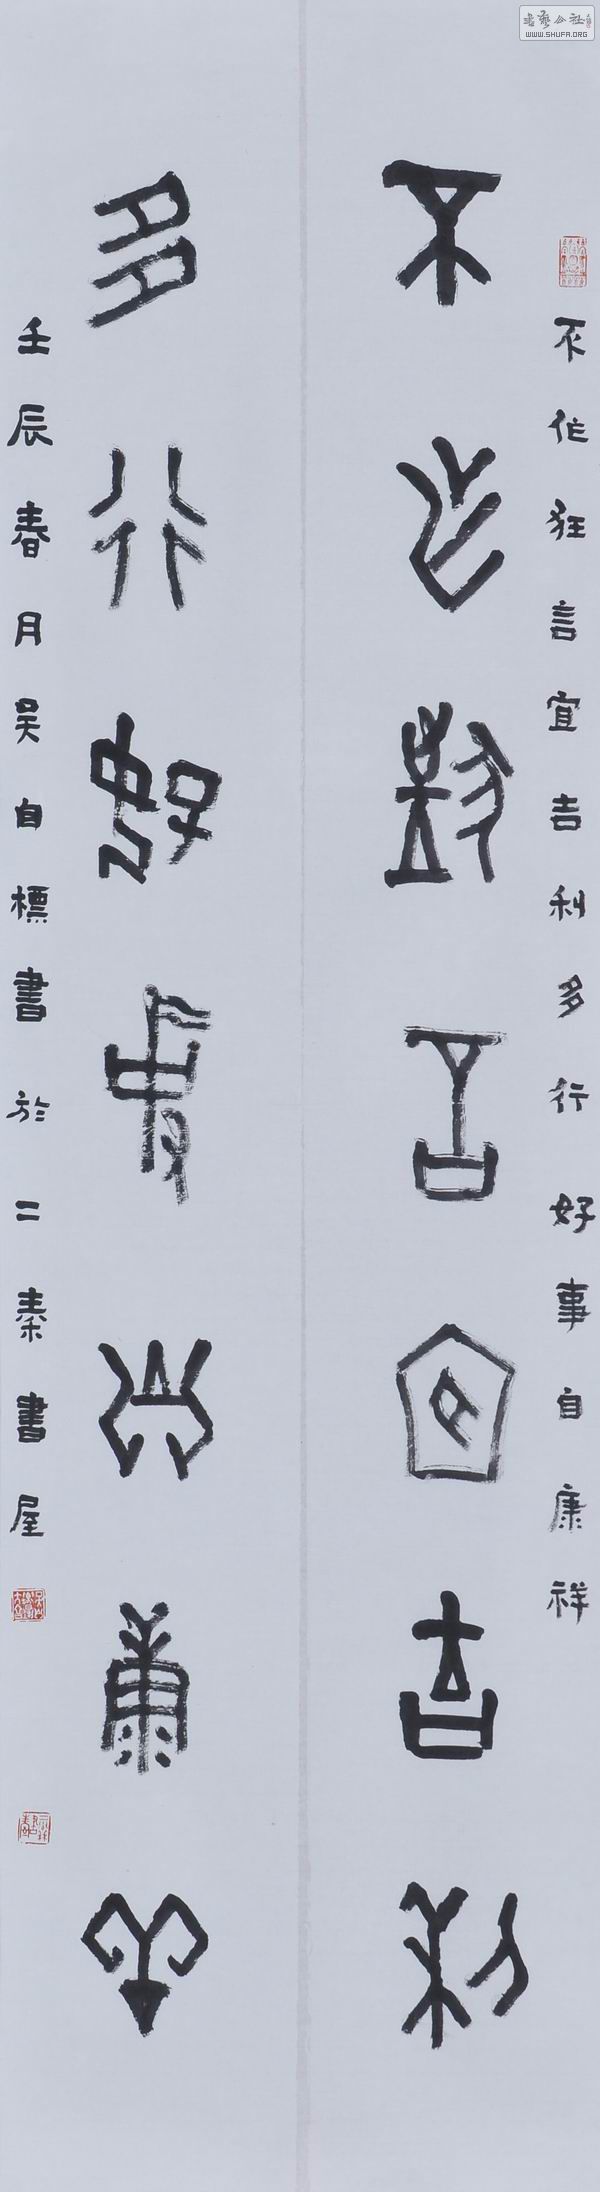 不作狂言宜吉利
多行好事自康祥
不作狂言宜吉利多行好事自康祥
壬辰春月吴自標書於二秦書屋
書藝公社
WWW.SHUFA.ORG